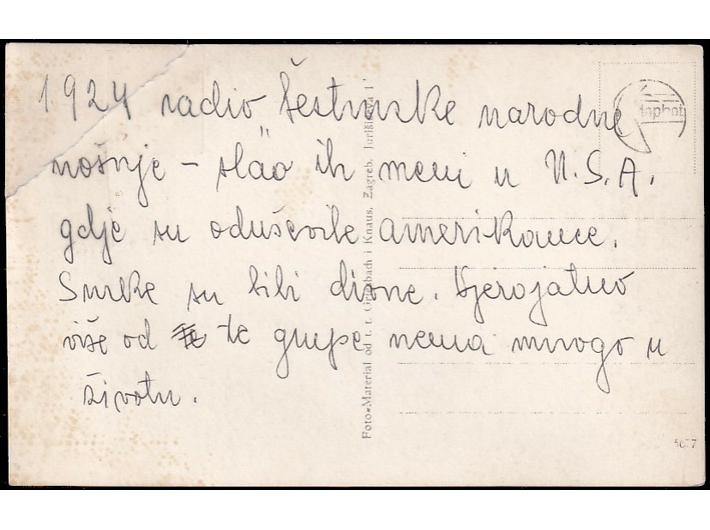 1924 radio šestinske narodne
nošnje – slao ih meni u U.S.A.
gdje su oduševile amerikance.
Snike su bili divne. Vjerojatno
više od te grupe nema mnogo u
životu.
Foto-Material od t. t. Griesbach i Knaus, Zagreb, Jurišićeva 1